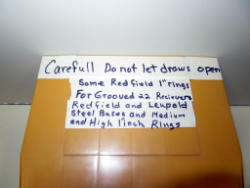 Carefull Do not let draws open
Some Redfield 1" rings
For Grooved 22 Recivers
Redfield and Leupold
Steel Bases and Medium
and High 1 inch Rings